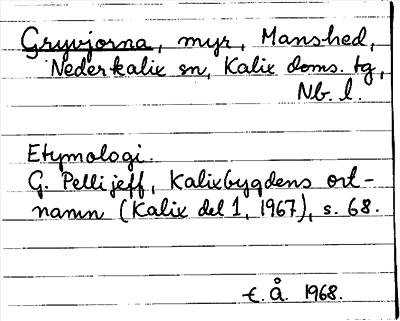 Gryvjorna, myr, Manshed,
Nederkalix sn, Kalix doms. tg,
Nb. l.
Etymologi.
G. Pellijeff, Kalixbygdens ort-
namn (Kalix del 1, 1967), s. 68.
t. Å. 1968.